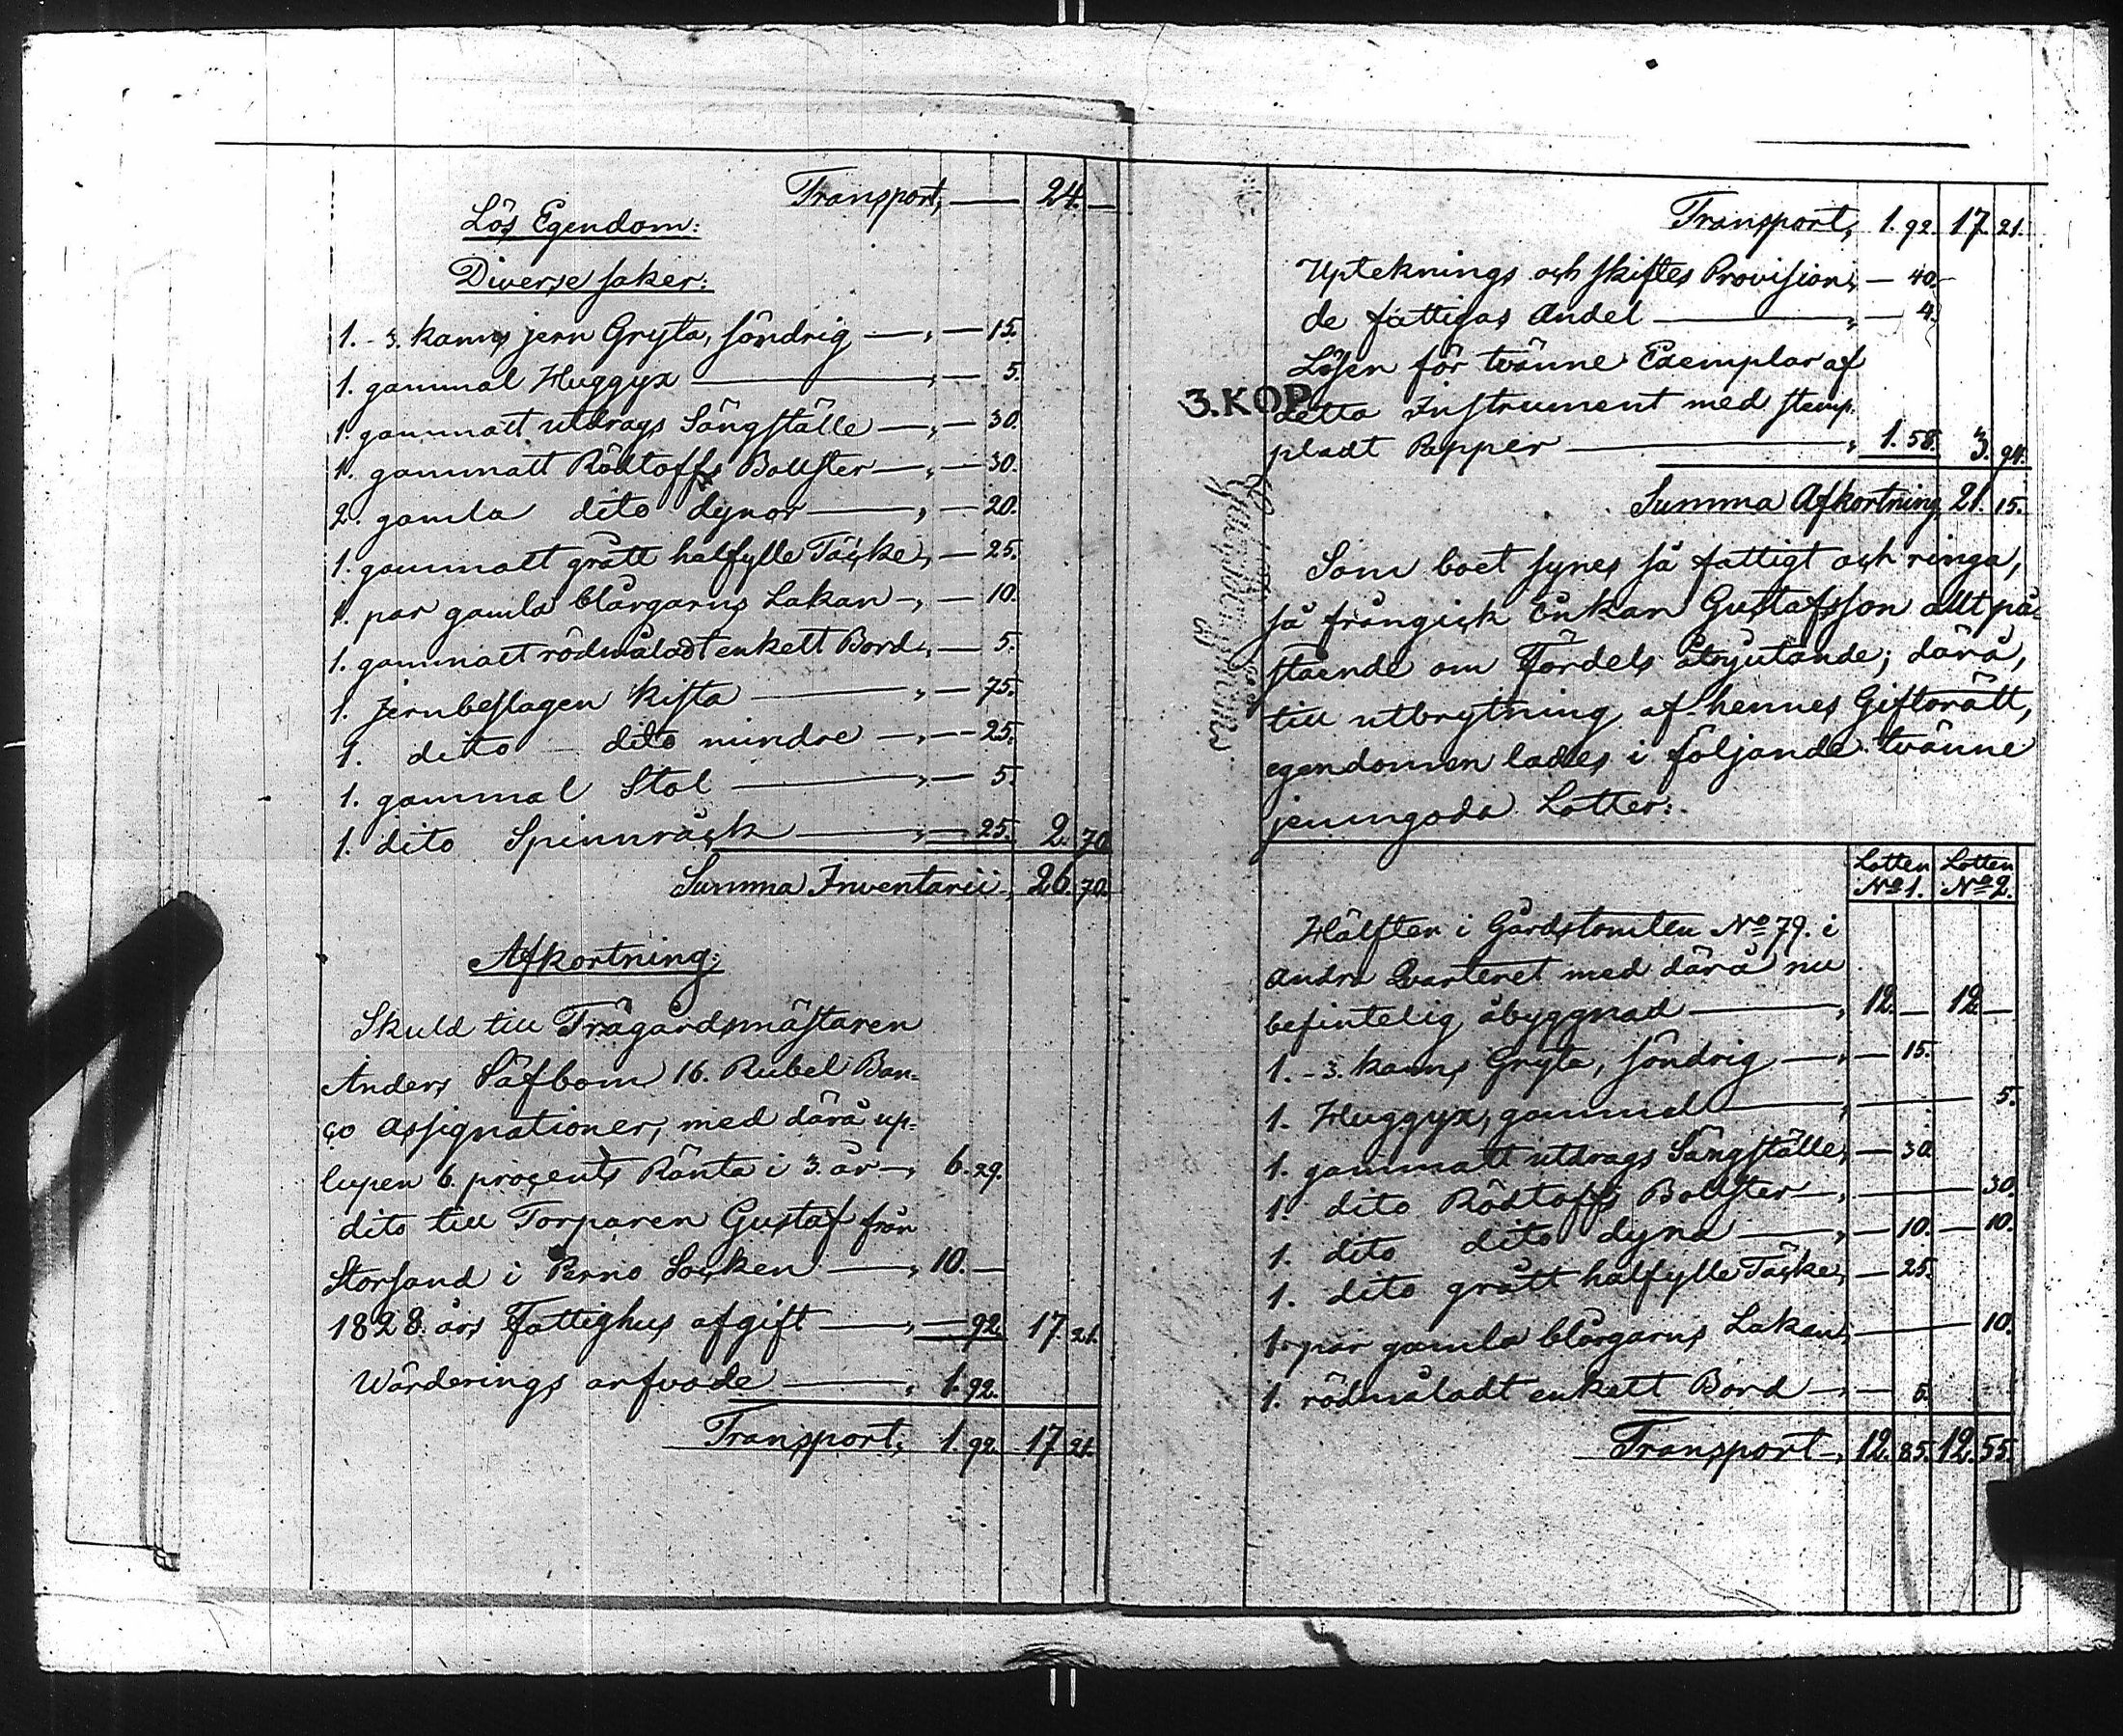 Transport, — 24. —
Lös Egendom:
Diverse saker:
1. - 3. kanns jern Gryta, söndrig — " — 15.
1. gammal Huggyx — " — 5.
1. gammalt utdrags Sängställe — " — 30.
1. gammalt Rödtoffs Bollster — " — 30.
2. gamla dito dynor — " — 20.
1. gammalt grått halfylle Täcke " — 25.
1. par gamla blårgarns Lakan — " — 10.
1. gammalt rödmåladt enkelt Bord " — 5.
1. Jernbeslagen Kista — " — 75.
1. dito dito mindre — " — 25.
1. gammal Stol — " — 5.
1. dito Spinnråck — " — 25. 2. 70.
Summa Inventarii, 26. 70.
Afkortning:
Skuld till Trägårdsmästaren
Anders Säfbom 16. Rubel Ban-
co Assignationer, med därå up-
lupen 6. procents Ränta i 3. år — " 6. 29.
dito till Torparen Gustaf från
Storsand i Perno Socken — " 10. —
1828. års Fattighus afgift — " — 92. 17. 21.
Wärderings arfvode — " 1. 92.
Transport, 1. 92. 17. 21.
Transport, 1. 92. 17. 21.
Upteknings och skiftes Provision " — 40.
de fattigas Andel — " — 4.
Lösen för tvänne Exemplar af
3. KOP.
detta Instrument med stemp-
pladt Papper — " 1. 58. 3. 94.
Summa Afkortning, 21. 15.
Som boet synes så fattigt och ringa,
så frångick Enkan Gustafsson allt på-
stående om Fördels åtnjutande; därå,
till utbrytning af hennes Giftorätt,
egendomen lades i följande tvänne
jemngoda Lotter:
Lotten No 1. Lotten No 2.
Hälften i Gårdstomten No 79. i
andra Qvarteret med därå nu
befintelig åbyggnad — " 12. — 12. —
1. - 3. kanns Gryta, söndrig — " — 15.
1. Huggyx, gammal — " — 5.
1. gammalt utdrags Sängställe, — 30.
1. dito Rödtoffs Bollster — " — 30.
1. dito dito dyna — " — 10. — 10.
1. dito grått halfylle Täcke, — 25.
1. par gamla blårgarns Lakan, — 10.
1. rödmåladt enkelt Bord — " — 5.
Transport, 12. 85. 12. 55.